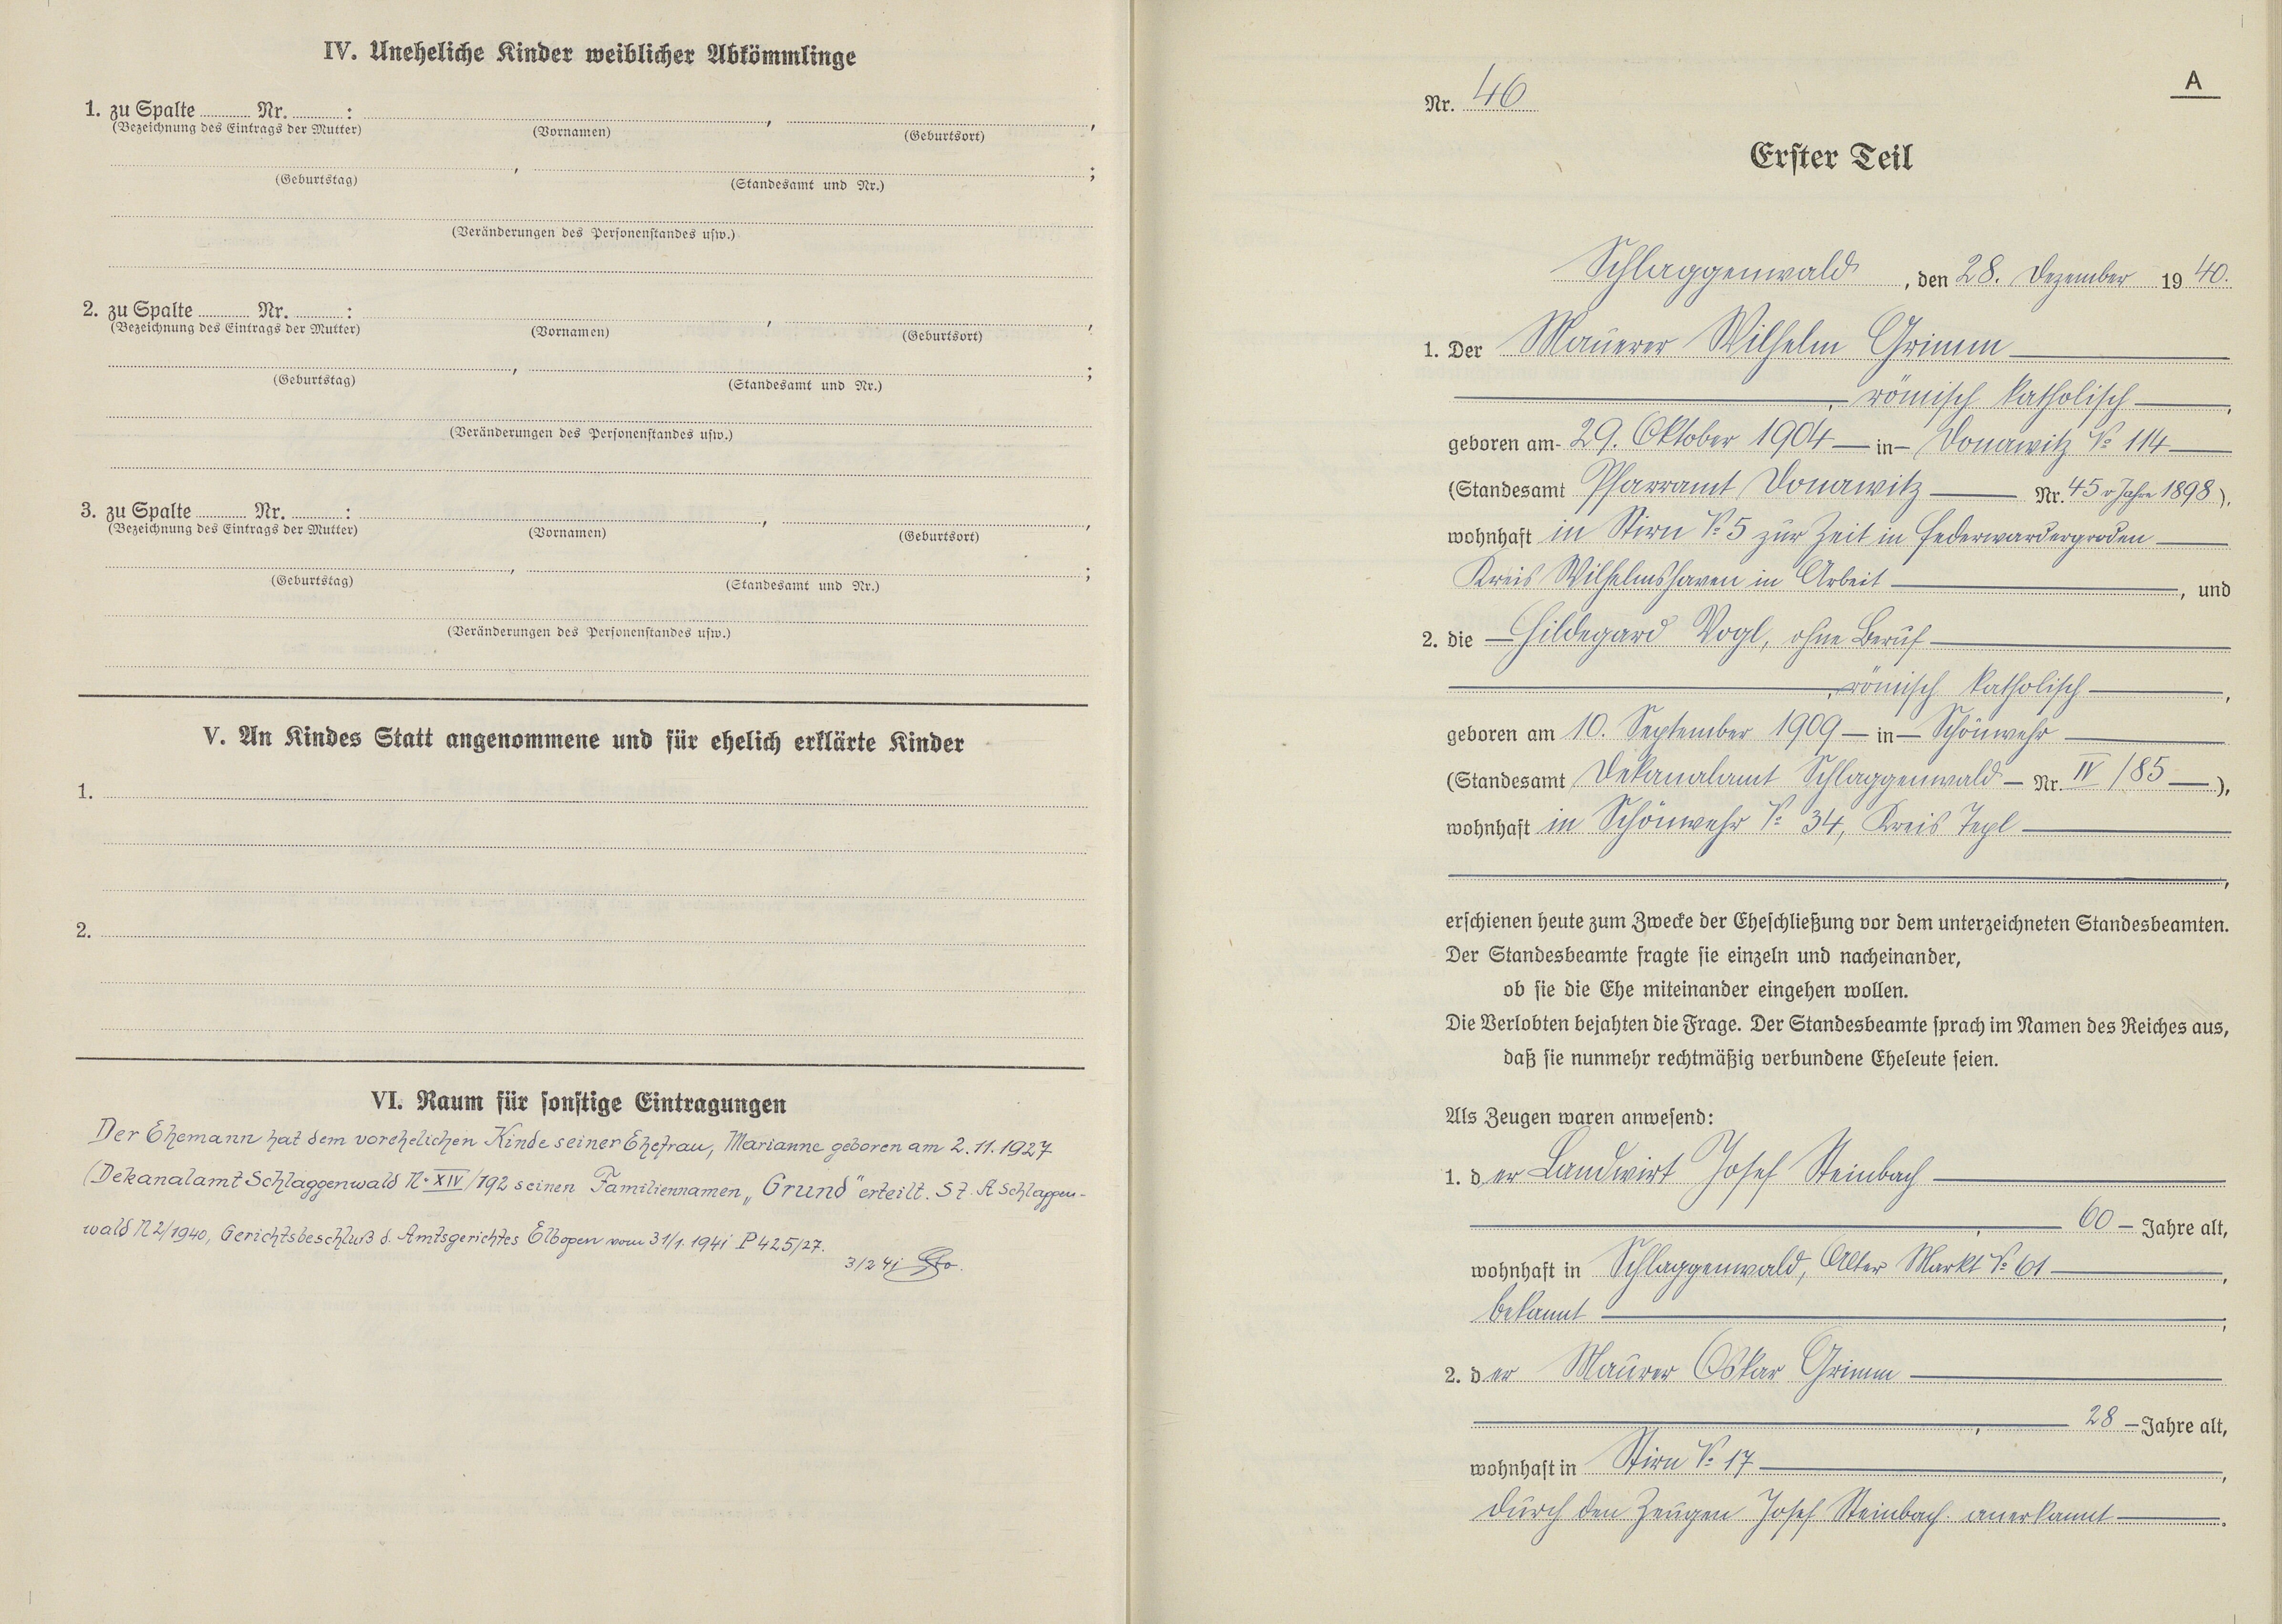 IV. Uneheliche Kinder weiblicher Abkömmlinge
1. zu Spalte Nr. : , ,
(Bezeichnung des Eintrags der Mutter) (Vornamen) (Geburtsort)
, ;
(Geburtstag) (Standesamt und Nr.)
(Veränderungen des Personenstandes usw.)
2. zu Spalte Nr. : , ,
(Bezeichnung des Eintrags der Mutter) (Vornamen) (Geburtsort)
, ;
(Geburtstag) (Standesamt und Nr.)
(Veränderungen des Personenstandes usw.)
3. zu Spalte Nr. : , ,
(Bezeichnung des Eintrags der Mutter) (Vornamen) (Geburtsort)
, ;
(Geburtstag) (Standesamt und Nr.)
(Veränderungen des Personenstandes usw.)
V. An Kindes Statt angenommene und für ehelich erklärte Kinder
1.
2.
VI. Raum für sonstige Eintragungen
Der Ehemann hat dem vorehelichen Kinde seiner Ehefrau, Marianne geboren am 2.11.1927
(Dekanalamt Schlaggenwald N° XIV/192 seinen Familiennamen „Grund" erteilt. St. A Schlaggen-
wald N 2/1940, Gerichtsbeschluß d. Amtsgerichtes Elbogen vom 31/1. 1941 P 425/27.
3/2 41
A
Nr. 46
Erster Teil
Schlaggenwald, den 28. Dezember 1940.
1. Der Mauerer Wilhelm Grimm
, römisch katholisch,
geboren am 29. Oktober 1904 in Donawitz N° 114
(Standesamt Pfarramt Donawitz Nr. 45 v Jahre 1898),
wohnhaft in Stirn N° 5 zur Zeit in Federwardergroden
Kreis Wilhelmshaven in Arbeit, und
2. die Hildegard Vogl, ohne Beruf
, römisch katholisch,
geboren am 10. September 1909 in Schönwehr
(Standesamt Dekanalamt Schlaggenwald Nr. IV/85),
wohnhaft in Schönwehr N° 34, Kreis Tepl
,
erschienen heute zum Zwecke der Eheschließung vor dem unterzeichneten Standesbeamten.
Der Standesbeamte fragte sie einzeln und nacheinander,
ob sie die Ehe miteinander eingehen wollen.
Die Verlobten bejahten die Frage. Der Standesbeamte sprach im Namen des Reiches aus,
daß sie nunmehr rechtmäßig verbundene Eheleute seien.
Als Zeugen waren anwesend:
1. der Landwirt Josef Steinbach
, 60 Jahre alt,
wohnhaft in Schlaggenwald, Alter Markt N° 61,
bekannt,
2. der Maurer Oskar Grimm
, 28 Jahre alt,
wohnhaft in Stirn N° 17,
durch den Zeugen Josef Steinbach anerkannt.